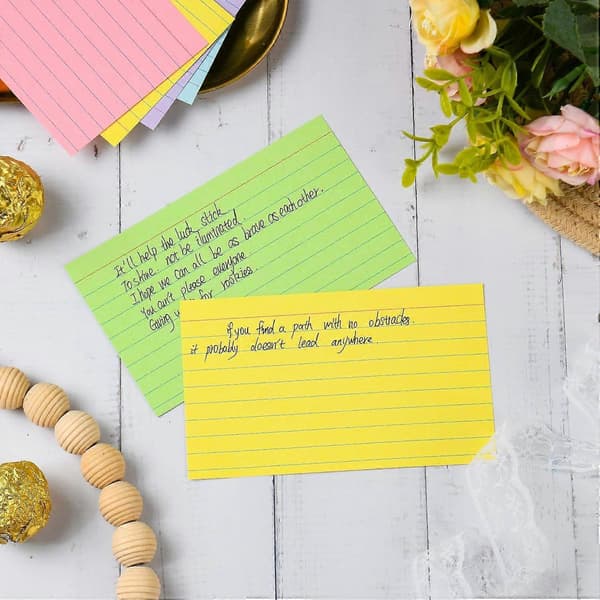 It'll help the luck stick
To shine. not be illuminated.
I hope we can all be as brave as each other.
You can't please everyone
Giving up for rookies.
If you find a path with no obstracles.
it probably doesn't lead anywhere.